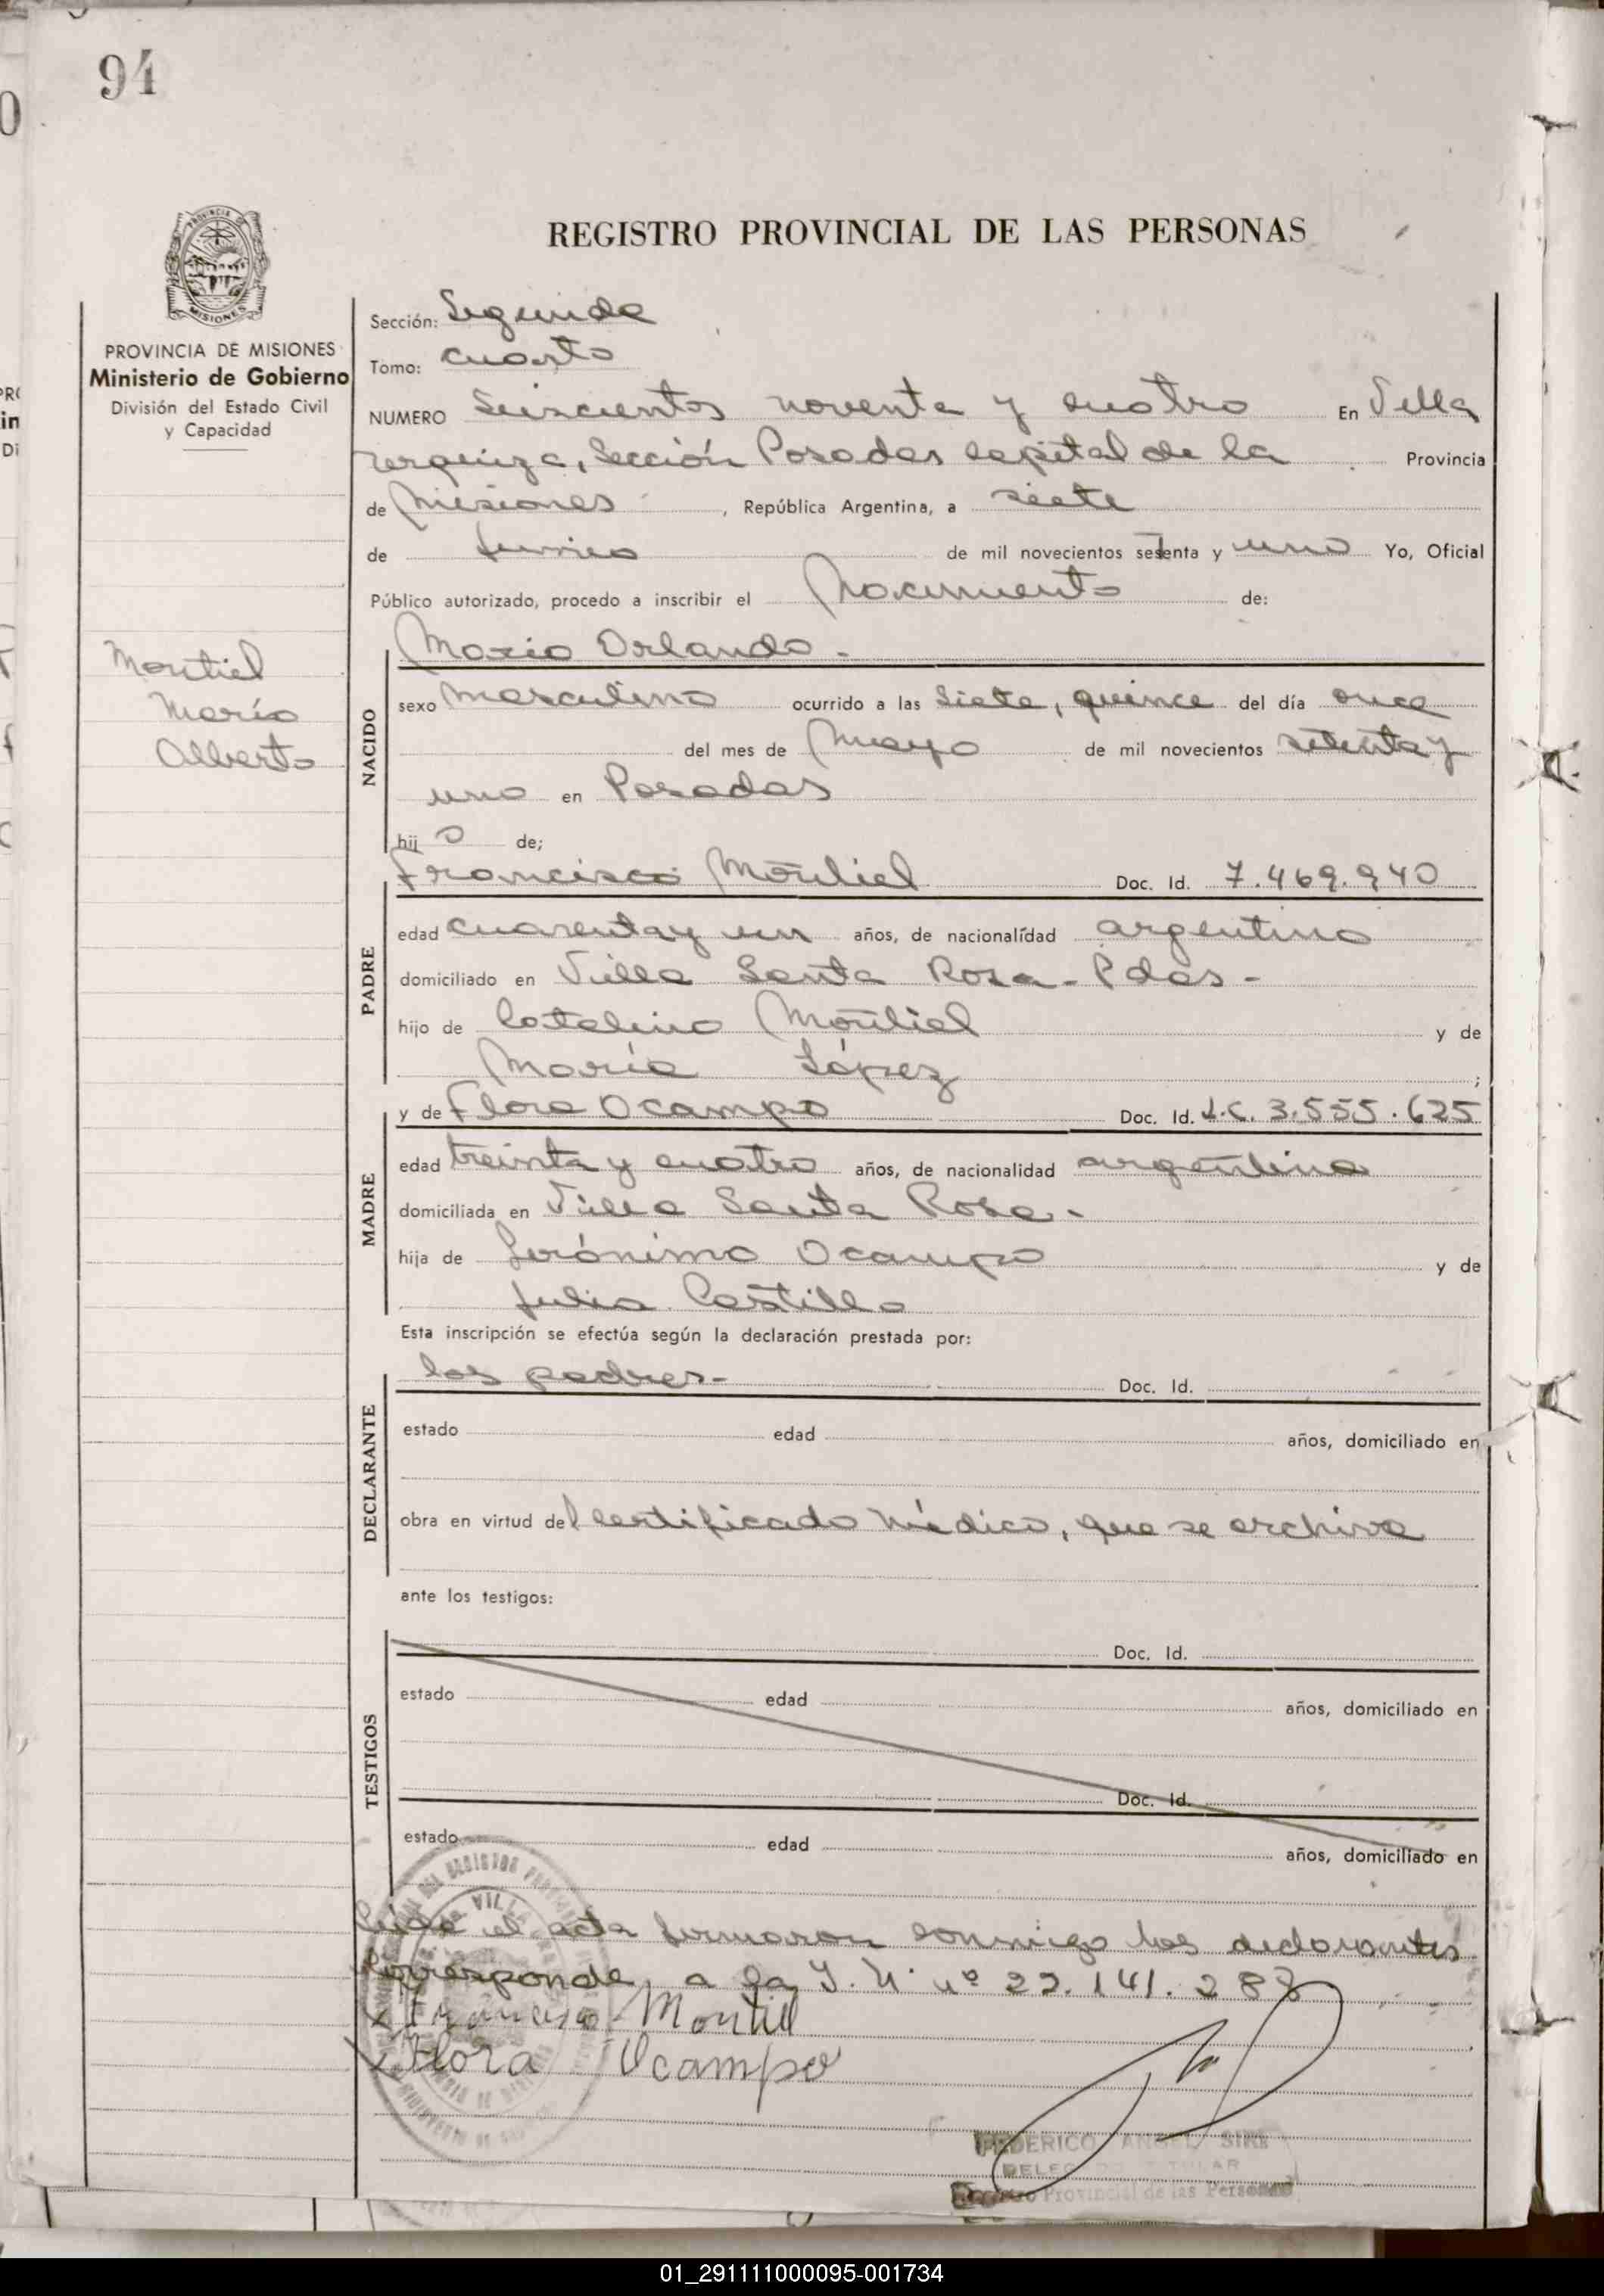 94
REGISTRO PROVINCIAL DE LAS PERSONAS
PROVINCIA DE MISIONES
Ministerio de Gobierno
División del Estado Civil
y Capacidad
Montiel
Mario
Alberto
Sección: Segunda
Tomo: cuarto
NUMERO Seiscientos noventa y cuatro En Villa
Urquiza, Sección Posadas capital de la Provincia
de Misiones, República Argentina, a siete
de junio de mil novecientos setenta y uno Yo, Oficial
Público autorizado, procedo a inscribir el Nacimiento de:
Mario Orlando.-
NACIDO
sexo masculino ocurrido a las siete, quince del día once
del mes de Mayo de mil novecientos setenta y
uno en Posadas
hijo de;
Francisco Montiel Doc. Id. 7.469.940
PADRE
edad cuarenta y un años, de nacionalidad argentino
domiciliado en Villa Santa Rosa - Pdas -
hijo de Catalino Montiel y de
María López ;
y de Flora Ocampo Doc. Id. L.C. 3.555.625
MADRE
edad treinta y cuatro años, de nacionalidad argentina
domiciliada en Villa Santa Rosa.-
hija de Jerónimo Ocampo y de
Julia Castillo
Esta inscripción se efectúa según la declaración prestada por:
los padres- Doc. Id.
DECLARANTE
estado edad años, domiciliado en
obra en virtud del certificado médico, que se archiva
ante los testigos:
Doc. Id.
TESTIGOS
estado edad años, domiciliado en
Doc. Id.
estado edad años, domiciliado en
Leída el acta firmaron conmigo los declarantes.
Corresponde, a la I. N. nº 22.141.288
Francisco Montiel
Flora Ocampo
FEDERICO ANGEL SIRE
TITULAR
Registro Provincial de las Personas
01_291111000095-001734